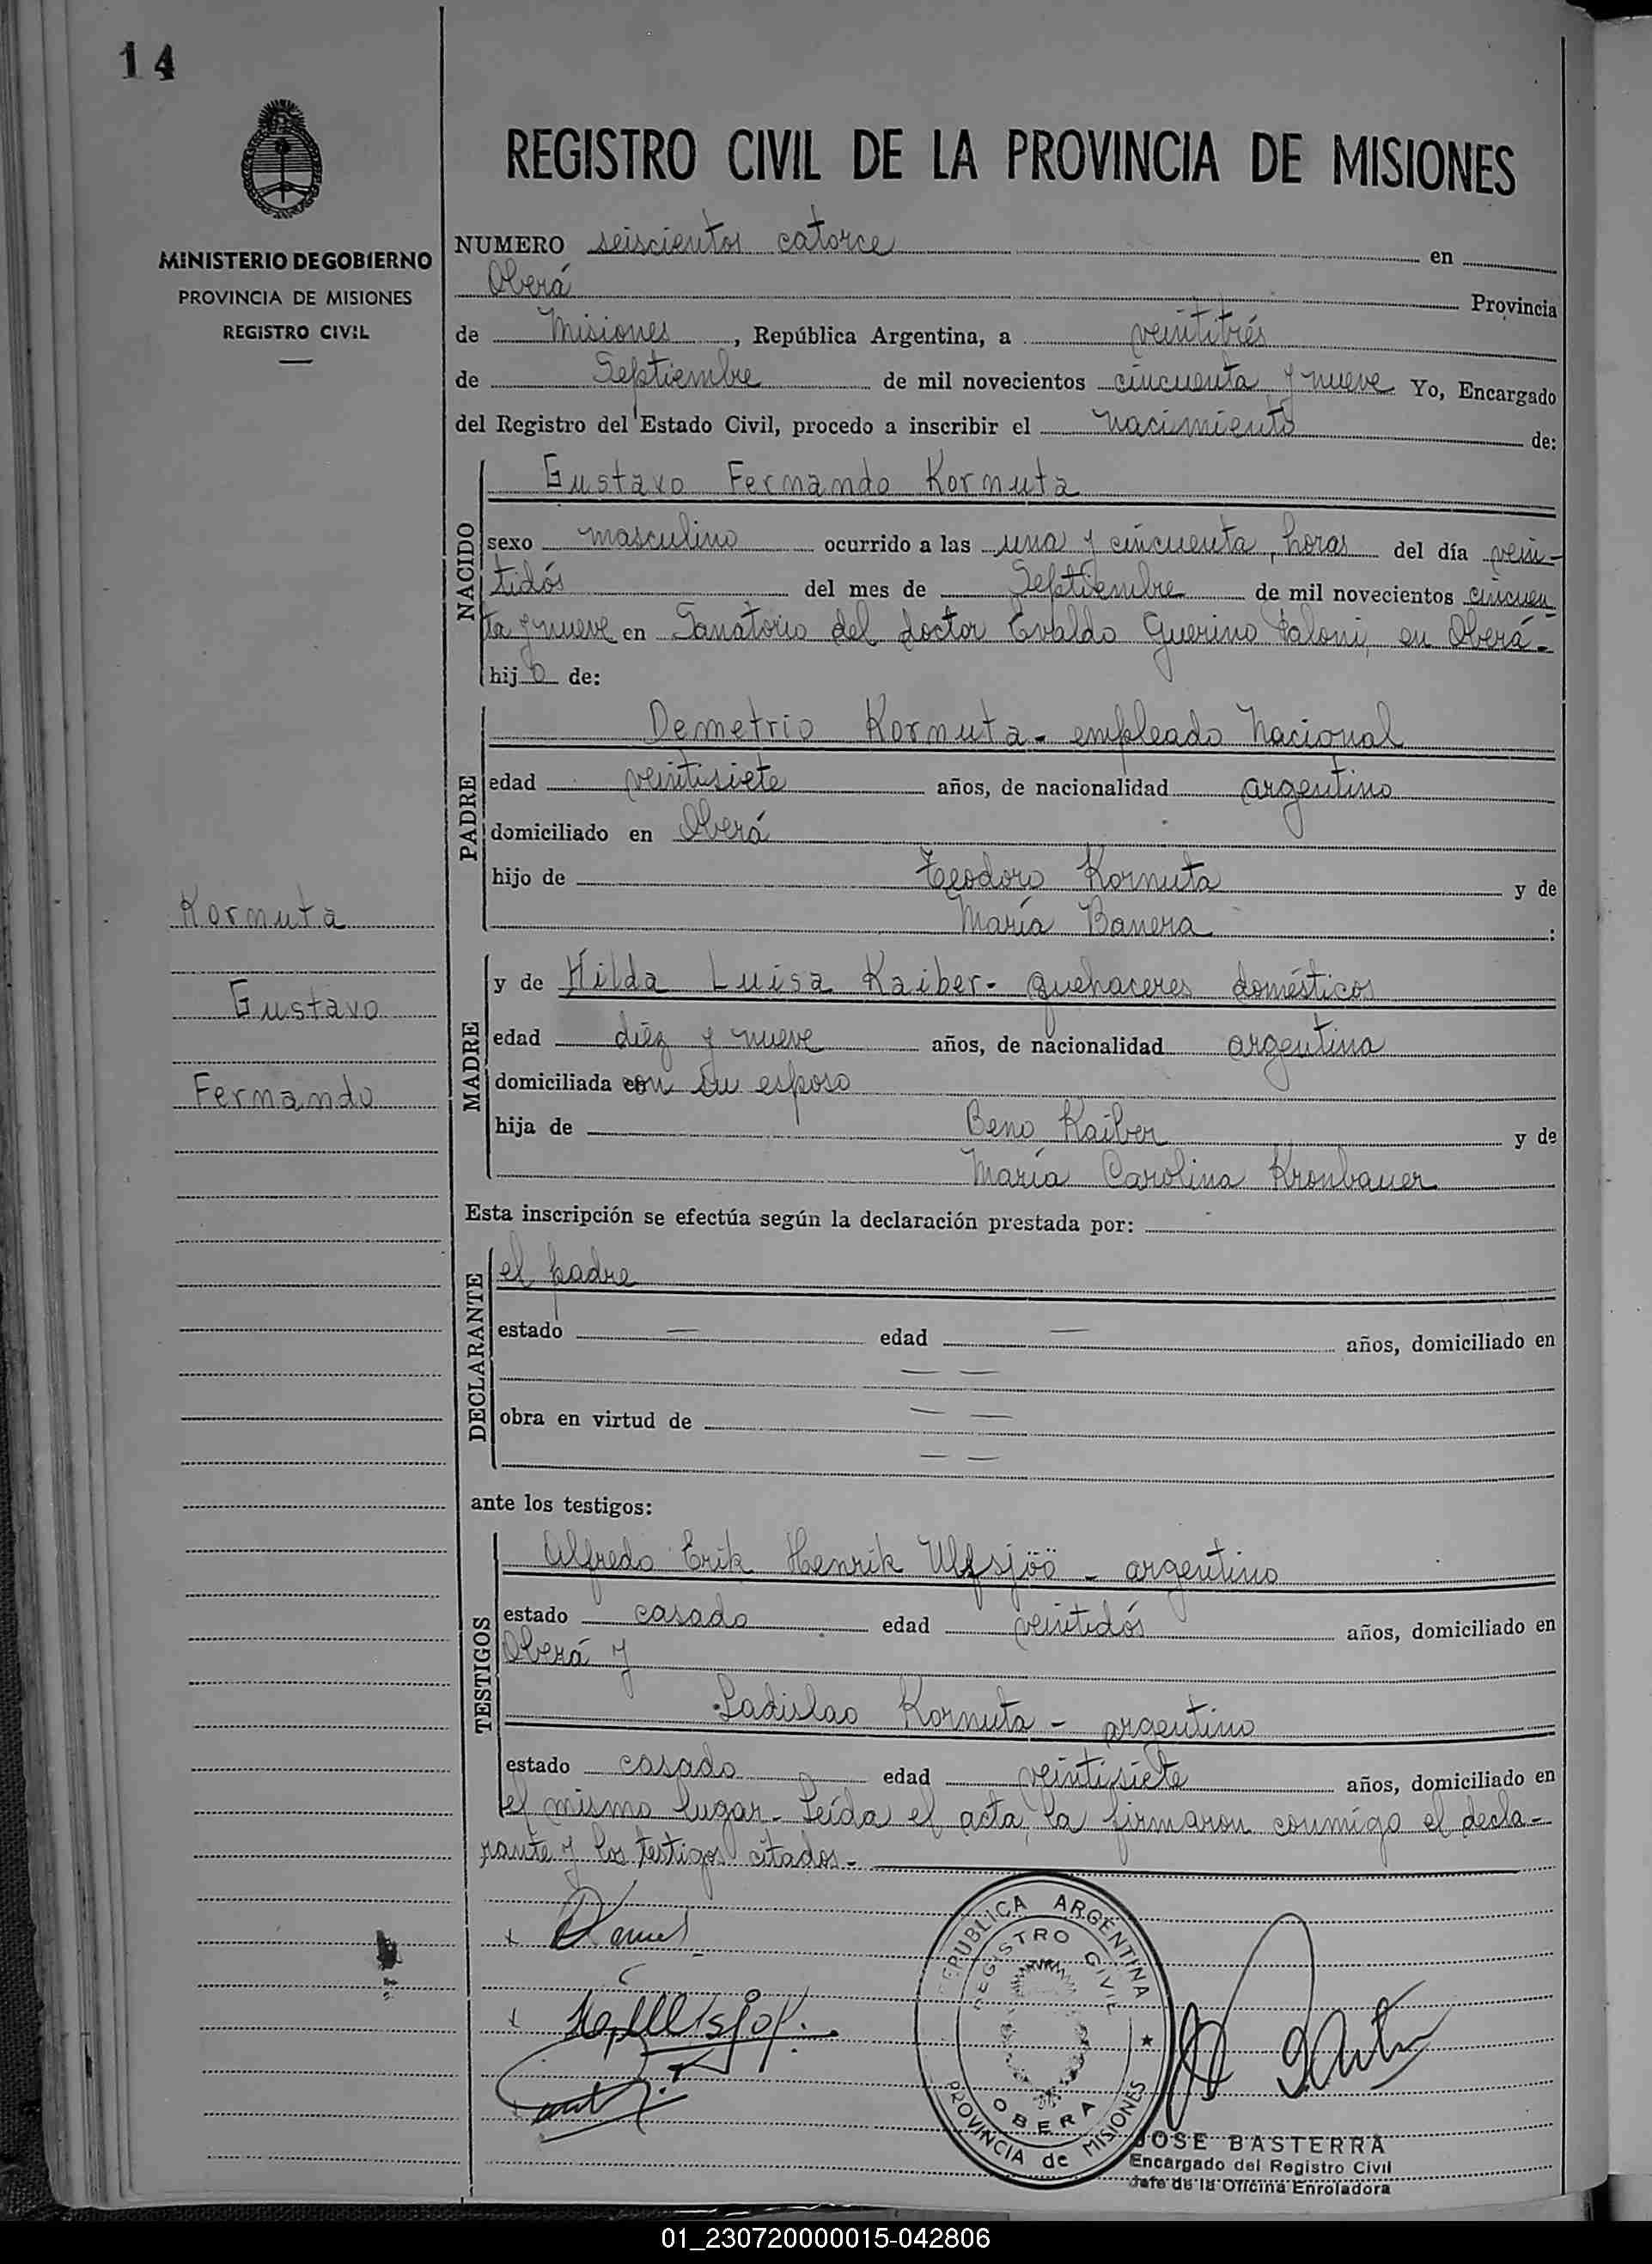 14
REGISTRO CIVIL DE LA PROVINCIA DE MISIONES
MINISTERIO DE GOBIERNO
PROVINCIA DE MISIONES
REGISTRO CIVIL
NUMERO seiscientos catorce en
Oberá Provincia
de Misiones, República Argentina, a veintitrés
de Septiembre de mil novecientos cincuenta y nueve Yo, Encargado
del Registro del Estado Civil, procedo a inscribir el nacimiento de:
NACIDO
Gustavo Fernando Kornuta
sexo masculino ocurrido a las una y cincuenta, horas del día vein-
tidós del mes de Septiembre de mil novecientos cincuen
ta y nueve en Sanatorio del doctor Evaldo Guerino Paloni, en Oberá-
hijo de:
PADRE
Demetrio Kornuta - empleado Nacional
edad veintisiete años, de nacionalidad argentino
domiciliado en Oberá
hijo de Teodoro Kornuta y de
María Banera:
Kornuta
Gustavo
Fernando
MADRE
y de Hilda Luisa Kaiber - quehaceres domésticos
edad diéz y nueve años, de nacionalidad argentina
domiciliada con su esposo
hija de Beno Kaiber y de
María Carolina Kronbauer
Esta inscripción se efectúa según la declaración prestada por:
DECLARANTE
el padre
estado — edad — años, domiciliado en
— —
obra en virtud de — —
— —
ante los testigos:
TESTIGOS
Alfredo Erik Henrik Ulfsjöö - argentino
estado casado edad veintidós años, domiciliado en
Oberá y
Ladislao Kornuta - argentino
estado casado edad veintisiete años, domiciliado en
el mismo lugar - Leída el acta, la firmaron conmigo el decla-
rante y los testigos citados -
REPUBLICA ARGENTINA
REGISTRO CIVIL
OBERA
PROVINCIA de MISIONES
JOSE BASTERRA
Encargado del Registro Civil
Jefe de la Oficina Enroladora
01_230720000015-042806